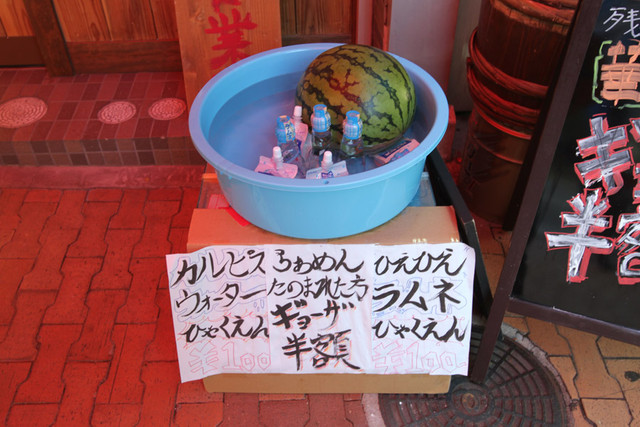 業
カルピス
ウォーター
ひゃくえん
¥100
らあめん
たのまれた方
ギョーザ
半額
ひえひえ
ラムネ
ひゃくえん
¥100
残
半